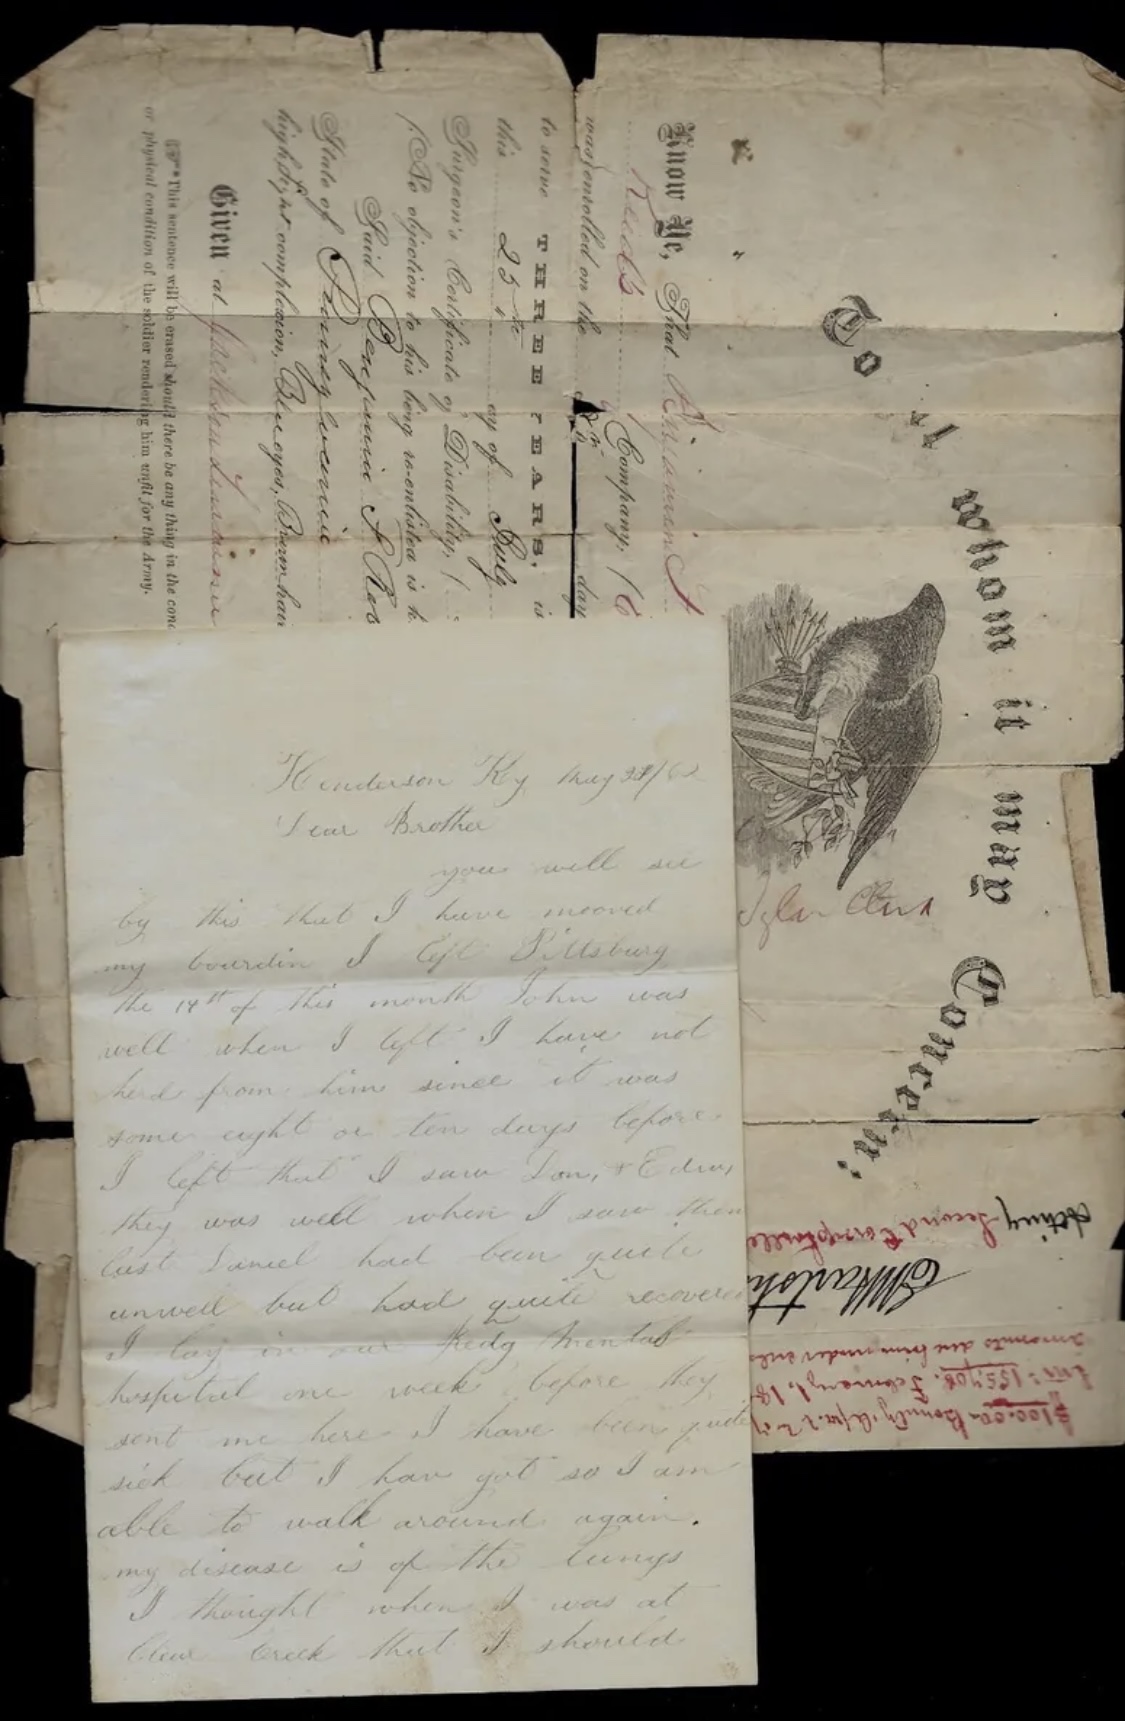 Henderson Ky May /62
Dear Brother
you will see
by this that I have mooved
my bourdin I left Pittsburg
the 14th of this month John was
well when I left I have not
herd from him since it was
some eight or ten days before
I left that I saw Dan, & Edw,
they was well when I saw them
last Daniel had been quite
unwell but had quite recovered
I lay in our Redg mental
hospital one week before they
sent me here I have been quite
sick but I hav got so I am
able to walk around again.
my disease is of the lungs
I thought when I was at
Clear Creek that I should
To
whom it may Concern:
Know Ye, That Benjamin F
Company, (
was enrolled on the day
to serve THREE YEARS, is
this 25th day of July
Surgeon's Certificate of Disability, (
(No objection to his being re-enlisted is k
Said Benjamin F
State of
high, light complexion, Blue eyes, Brown hair
Given at Jackson
This sentence will be erased should there be any thing in the cond
or physical condition of the soldier rendering him unfit for the Army.
Clark
Acting Second
$100.00 Bounty
155,708. February 1, 18
amounts due him under